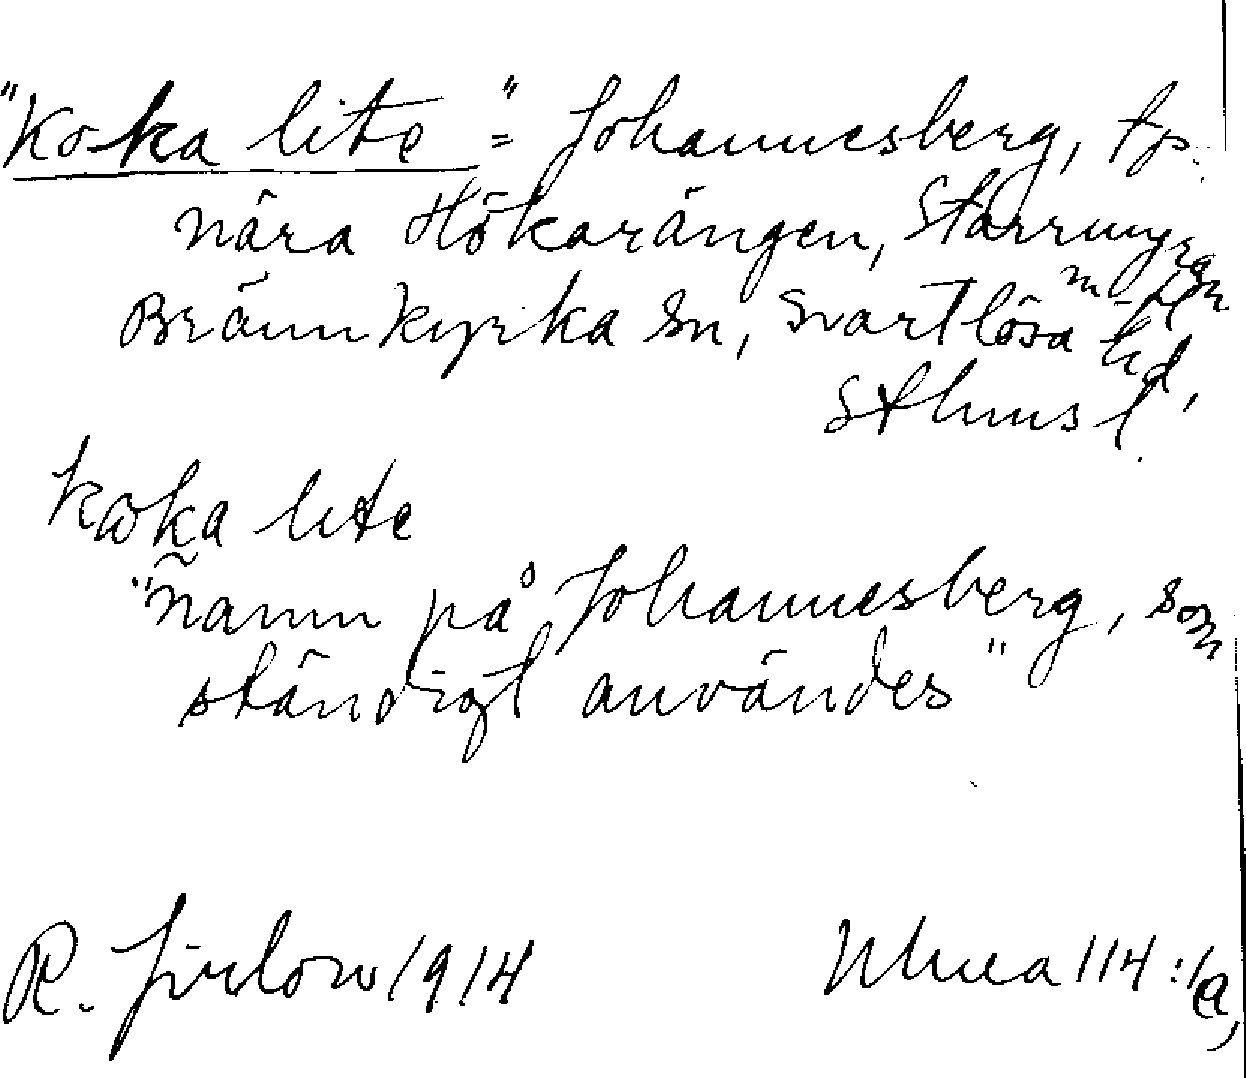 "Koka lite" = Johannesberg, tp.
nära Hökarängen, Starrmyran
Brännkyrka sn, Svartlösa hd,
Sthms l.
koka lite
"namn på Johannesberg, som
ständigt användes"
R. Jirlow 1914